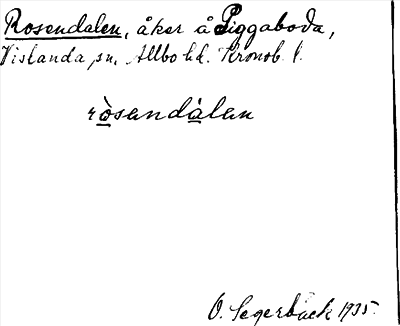 Rosendalen, åker å Piggaboda,
Vislanda sn, Allbo hd. Kronob. l.
ròsendàlen
O. Segerbäck 1935.